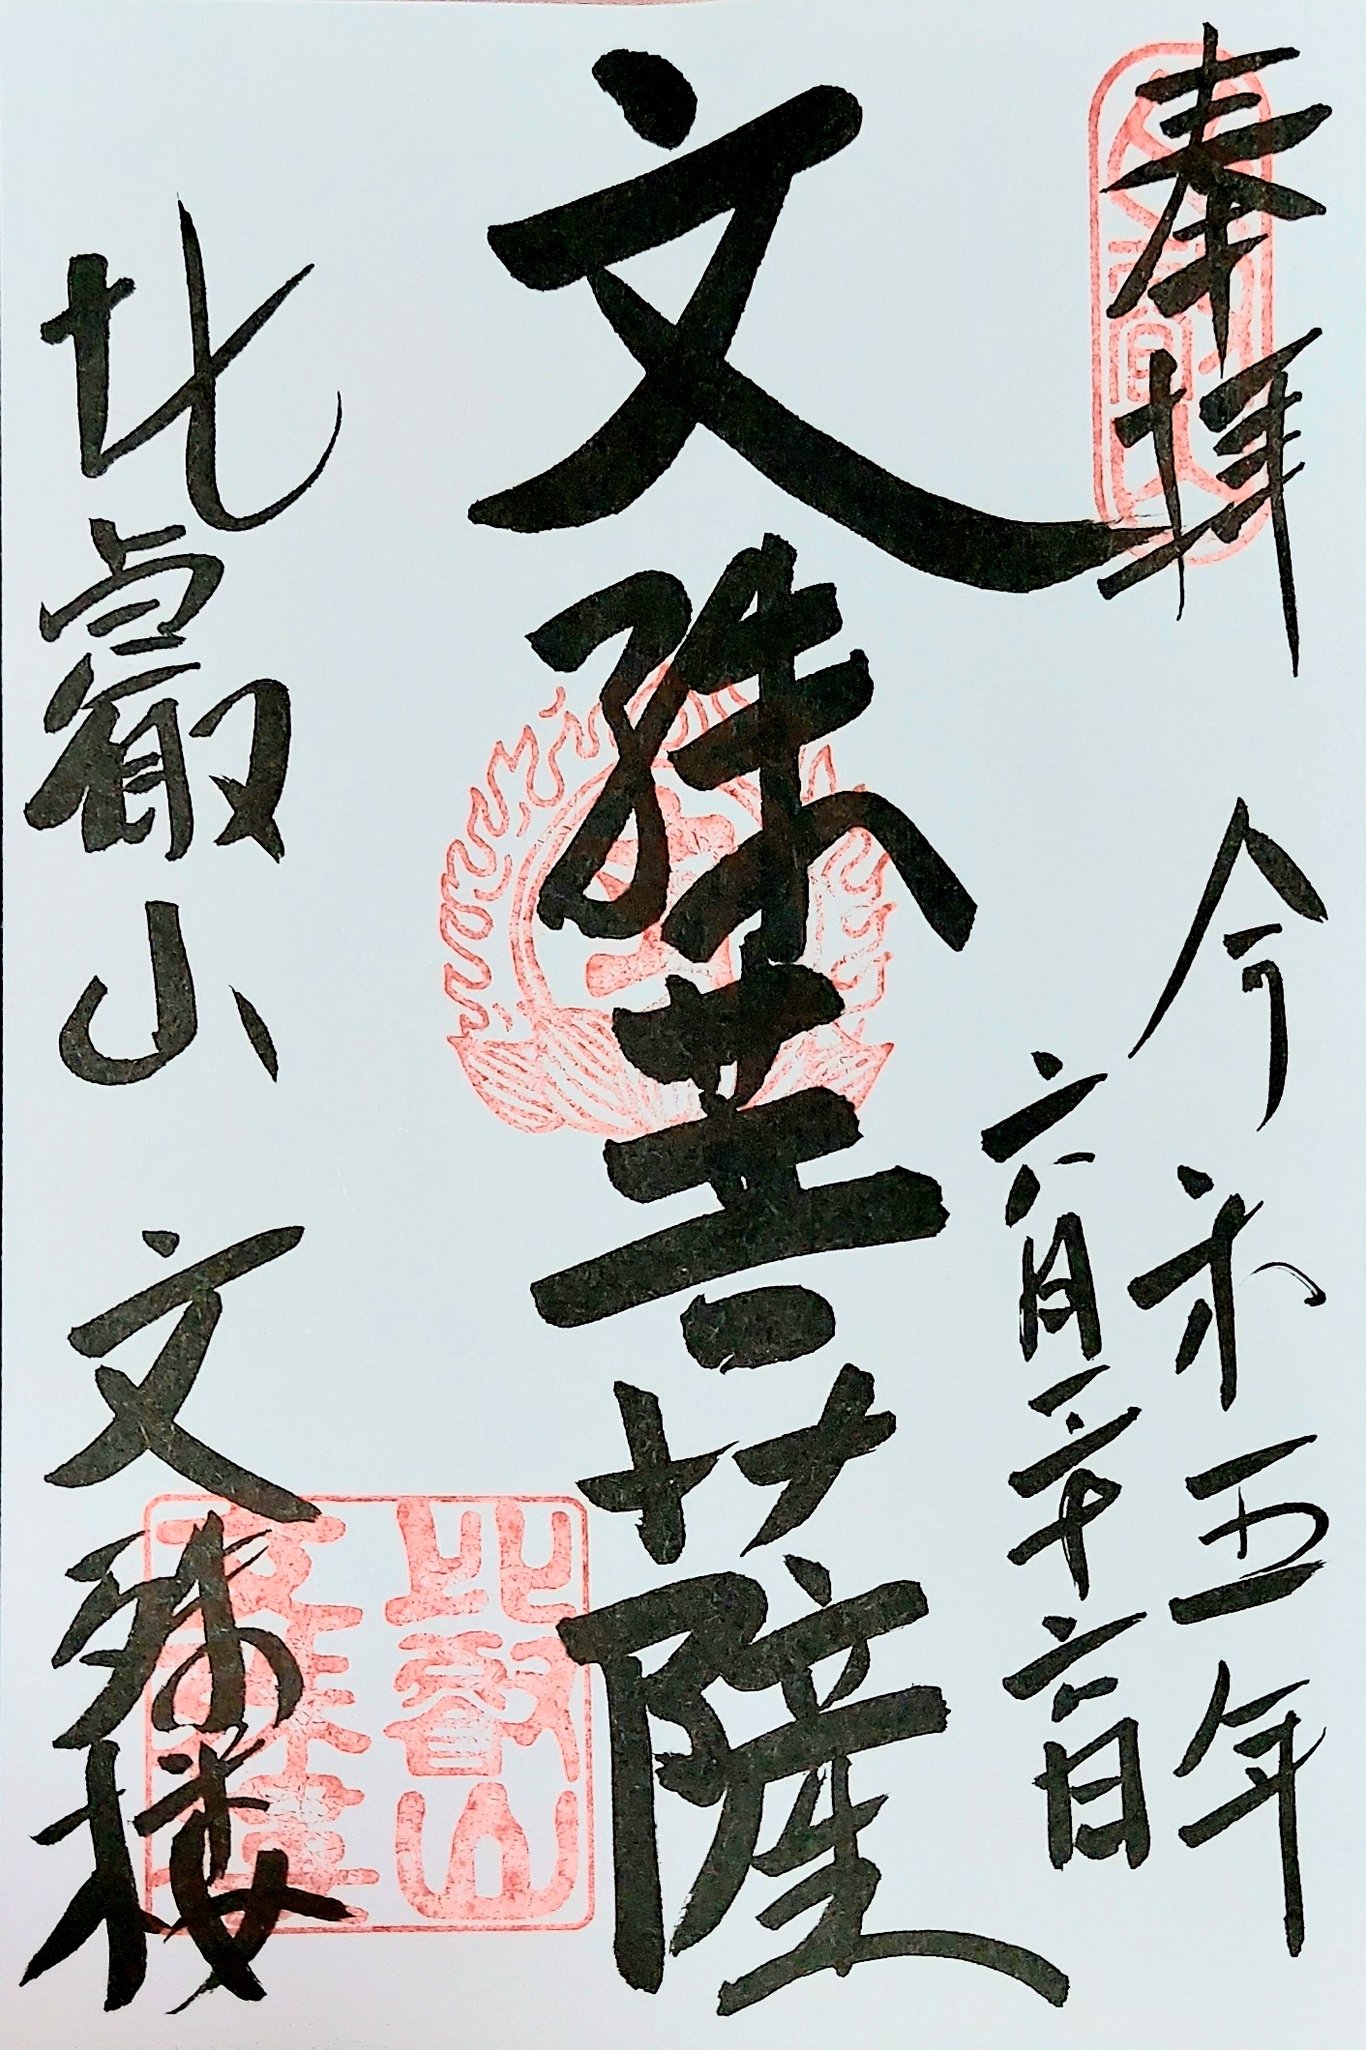 奉拝
令和五年
六月二十六日
文殊菩薩
比叡山 文殊楼
比叡山
文殊楼